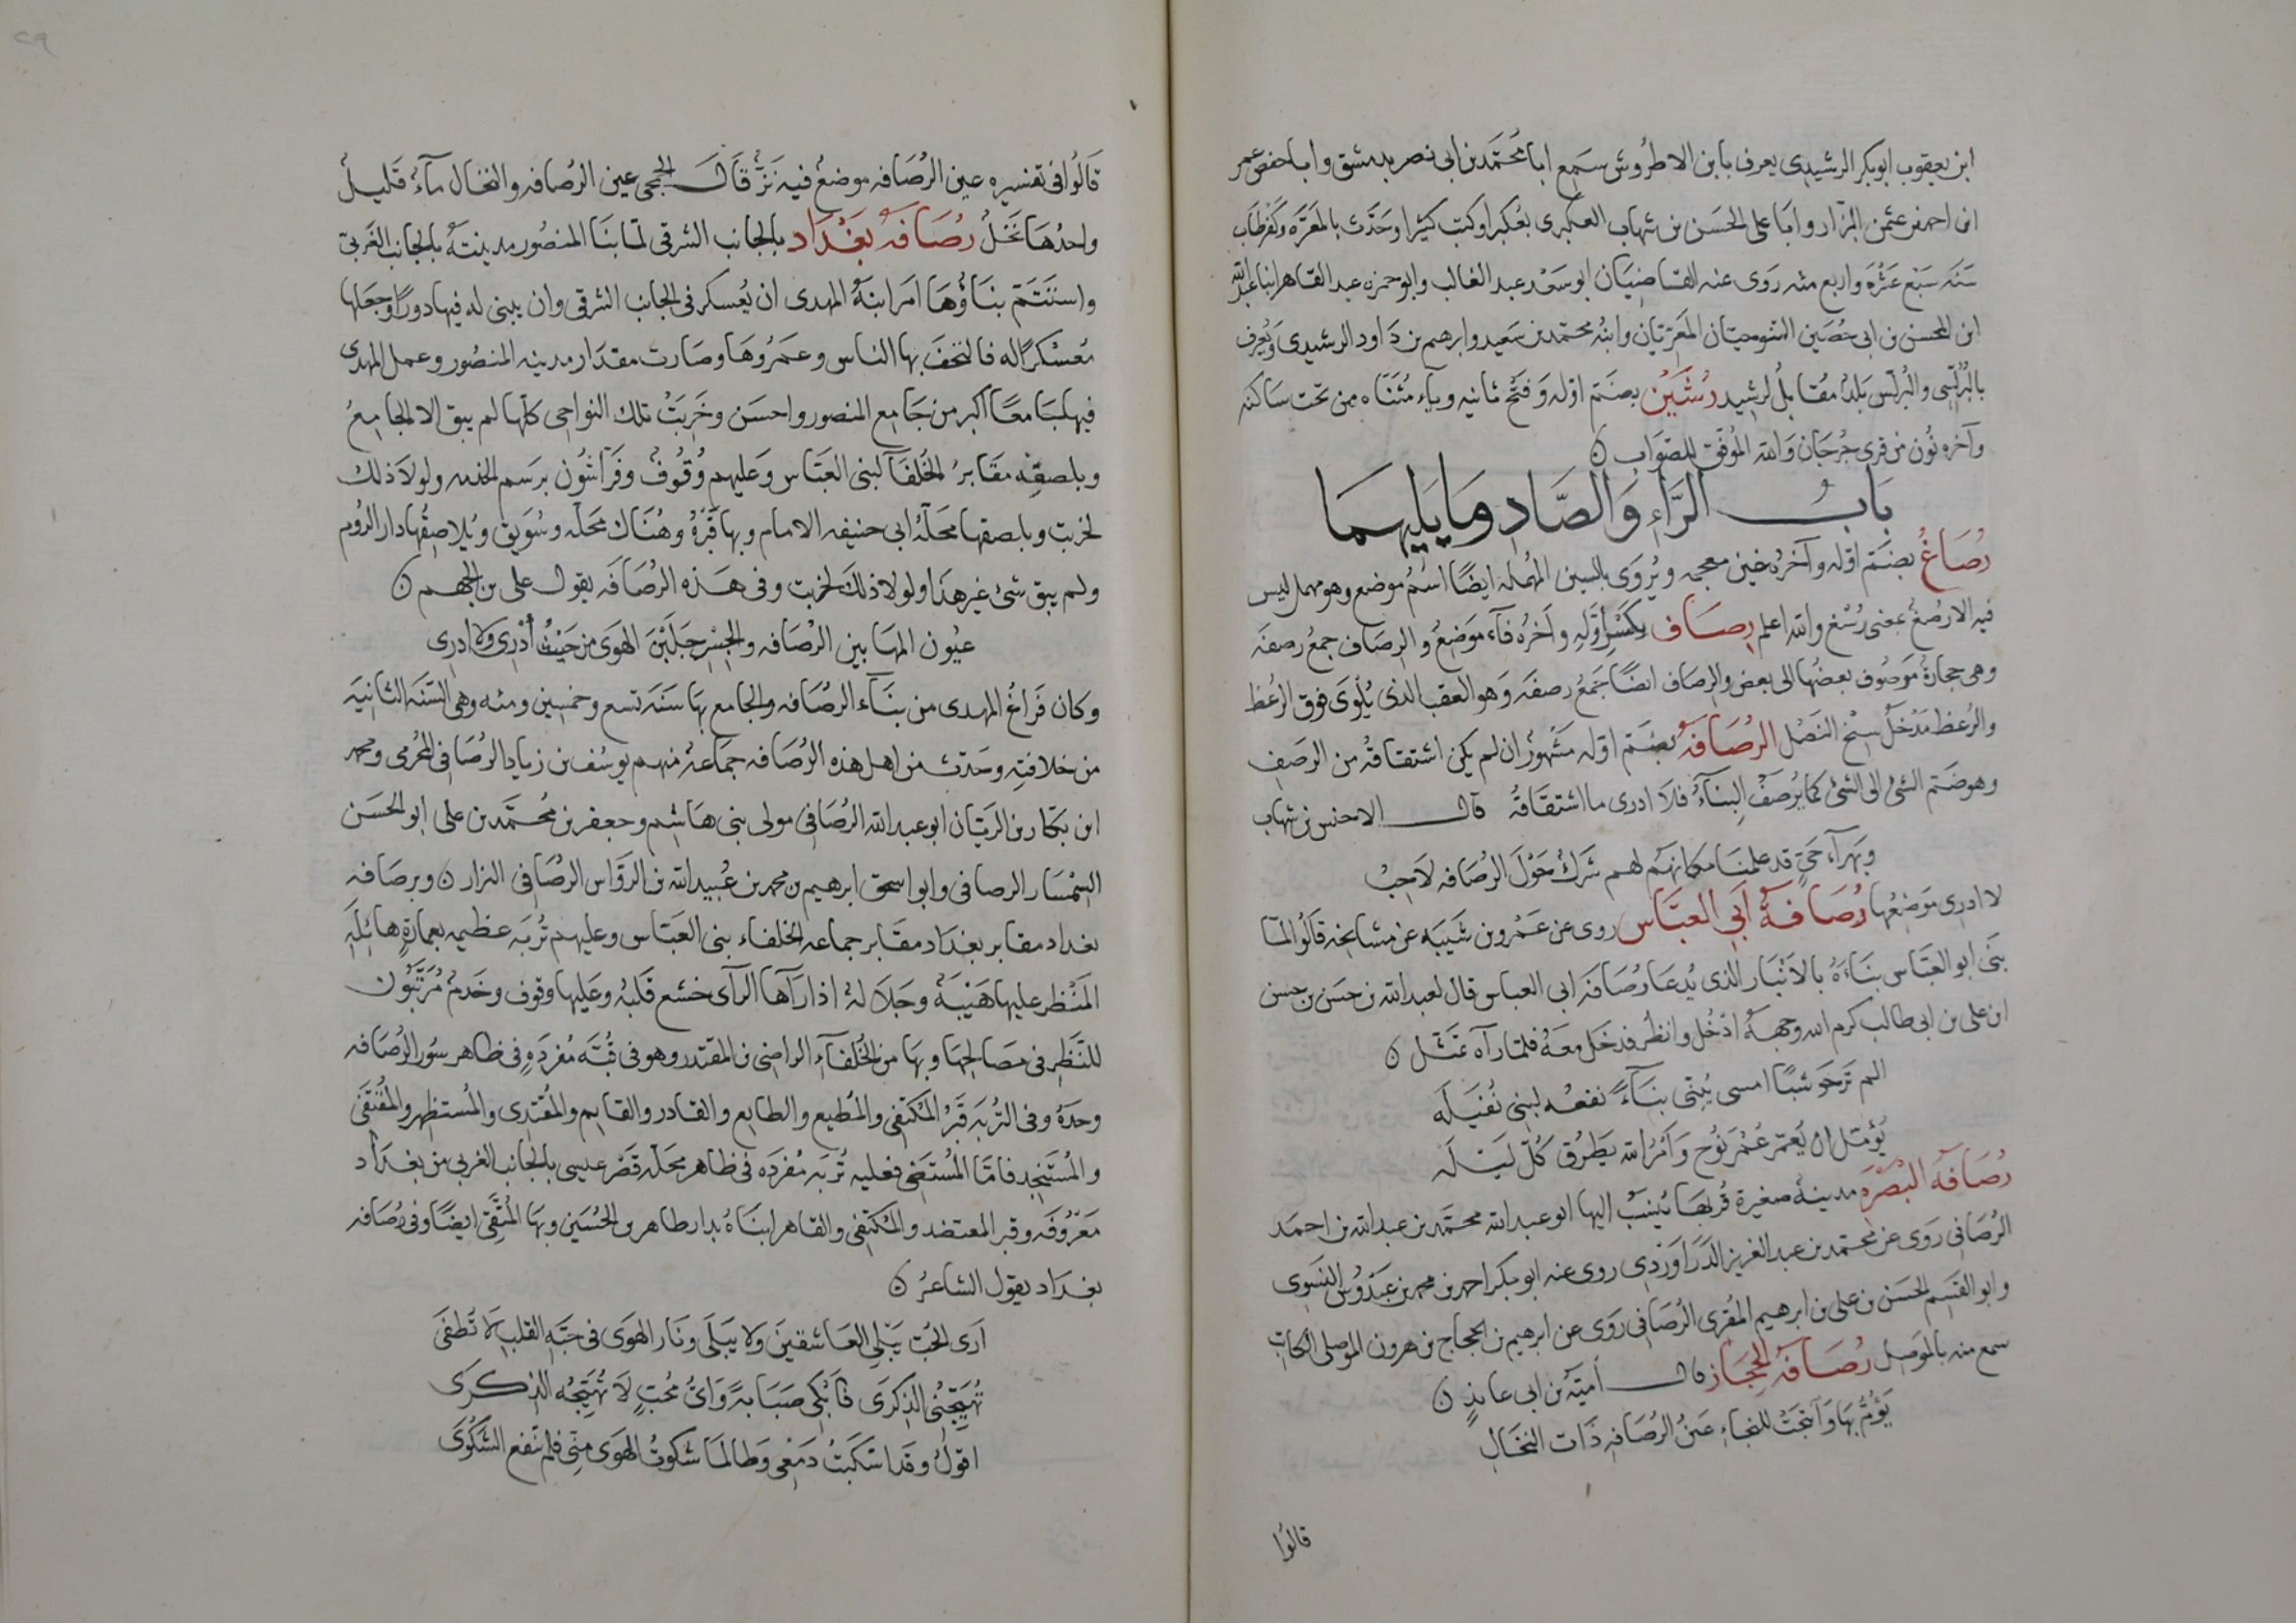 ابن يعقوب ابو بكر الرشيدى يعرف بابن الاطروش سمع ابا محمد بن ابى نصر بدمشق وابا حفص عمر
ابن احمد بن عثمن البزار وابا على الحسن بن شهاب العكبرى بعكبرا وكتب كثيرا وحدّث بالمعرّه وكفرطاب
سنه سبع عشره واربع مئه روى عنه القاضيان ابو سعد عبد الغالب وابو حمزه عبد القاهر ابنا عبد الله
ابن المحسن بن ابى حصين التنوحيان المعريّان وابنه محمد بن سعيد وابرهيم بن داود الرشيدى ويعرف
بالبُرلّسى والبرلّس بلد مقابل لرشيد رُشَيْن بضم اوّله وفتح ثانيه وياء مثناه من تحت ساكنه
وآخره نون من قرى جرجان والله الموفق للصواب ن
باب الرَّاءِ وَالصَّادِ وَمَا يَليهِمَا
رُصَاغُ بضم اوّله وآخره غين معجمه ويُروى بالسين المهمله ايضًا اسم موضع وهو مهمل ليس
فيه الا رُصغ بمعنى رُسْغ والله اعلم رِصَاف بكسر أوّلهِ وآخره فآء موضع والرصاف جمع رصفَه
وهى حجارة مَرصُوف بعضها الى بعض والرصاف ايضًا جمع رصفه وهو العقب الذى يُلوى فوق الرُعظ
والرعظ مدخل سِنْخ النَصْل الرُصَافَةُ بضم اوّله مشهور ان لم يكن اشتقاقه من الرصف
وهو ضم الشئ الى الشئ كما يُرصَفُ البِنآء فلا ادرى ما اشتقاقه قال الاخنس بن شهاب
وبهرآءُ حَىّ قد علمنا مكانهم لهم شَرَكٌ حَوْلَ الرُصافه لاحِبُ
لا ادرى موضعها رُصَافَةُ أبى العبَّاس روى عن عمرو بن شَيبَه عن مشايخه قالوا لمّا
بنى ابو العبّاس بناءَهُ بالانْبَار الذى يُدعا رُصَافَه ابى العباس قال لعبد الله بن حسن بن حسن
ابن على بن ابى طالب كرم الله وجهه ادْخُل وانظُر فدخل معَهُ فلمّا رآه تمثّل ن
الم تر حوشبًا امسى يُبَنِّى بنآءً نفعه لبنى نُفَيْلَه
يُؤمّل ان يُعمّر عُمْرَ نُوْح وَأمْرُ الله يَطرُق كُلَّ لَيْلَه
رُصَافَةُ البَصْرَةِ مدينة صغيرة قُربها يُنسَبُ اليها ابو عبد الله محمد بن عبد الله بن احمد
الرُصافى روى عن محمد بن عبد العزيز الدَرَاوَرْدِى روى عنه ابو بكر احمد بن محمد بن عبدُوس النسوى
وابو القسم الحسن بن على بن ابرهيم المُقرى الرُصافى روى عن ابرهيم بن الحجاج بن هرون الموصلى الكاتب
سمع منه بالموصل رُصَافَةُ الحِجَاز قال أميّة بن ابى عائذٍ ن
يَؤُمُّ بهَا وَانتحَتْ للنجاءِ عَيْنُ الرُصافهِ ذَات النِجَالِ
قالوُا
قالُوا فى تفسيره عين الرُصَافه موضع فيه نَزّ قال الجمحى عين الرُصافه والنجال مآء قليل
واحدُهَا نَجْلُ رُصَافَة بَغْدَاد بالجانب الشرقى لمّا بنا المنصُور مدينته بالجانب الغَربىّ
واستتمّ بناؤُهَا امَر ابنَه المهدى ان يُعسكر فى الجانب الشرقى وان يبنى له فيها دورًا وجعلها
مُعسْكرًا له فالتحق بها الناس وعمَرُوهَا وصارت مقدَار مدينه المنصُور وعمل المهدى
فيها جَامعًا اكبر من جَامع المنصور واحسَن وخَرِبَتْ تلك النواحى كلّها لم يبق الا الجامعُ
وبلصقِه مقَابرُ الخُلفَآ لبنى العبّاس وَعليهم وُقُوفٌ وفَرّاشُون برسم الخدمه ولولا ذلك
لخربت وبلصقها محلّهُ ابى حنيفه الامام وبها قبرُهُ وهُنَاك محلّه وسُوَيق ويُلاصقُها دار الرُوم
ولم يبق شئ غير هَذا ولولا ذلكَ لخربت وفى هَذه الرُصَافَه يقول على بن الجهم ن
عُيُون المهَا بين الرُصَافه والجِسْرِ جَلَبْنَ الهوَى من حَيْثُ أدْرِى وَلا ادرى
وكان فَراغُ المهدى من بنَآء الرُصَافه والجامع بهَا سَنَه تسع وخمسين ومئه وهى السّنَه الثانيَه
من خلافتِه وحَدّث من اهل هذه الرُصافه جماعة منهم يوسُف بن زياد الرُصافى المخرمى ومحمد
ابن بكّار بن الريّان ابو عبد الله الرُصَافِى مولى بنى هَاشِم وجعفر بن مُحمّد بن على ابو الحسَن
السِمْسَار الرصافى وابو اسحق ابرهيم بن محمد بن عُبيد الله بن الروّاس الرُصَافى البزار ن وبرصَافه
بغداد مقابر بغداد مقَابر جماعه الخلفاء بنى العبّاس وعليهم تُربَه عظيمه بعمارةٍ هائِلَةِ
المَنْظر عليها هَيْبَة وجَلالة اذا رآهَا الرآى خشع قلبُه وعَليها وقوف وخدم مُرَتّبُون
للنّظرِ فى مصَالحها وبهَا من الخُلفآءِ الراضى بن المقتدر وهو فى قُبّه مُفردَهٍ فى ظاهر سُور الرُصَافه
وحدَهُ وفى التُربَه قَبْرُ المُكتفى والمُطيع والطايع والقادر والقايم والمُقتدى والمُستظهر والمُقتفى
والمُسْتَنجِد فامّا المُسْتَضِئ فعليه تُربَه مُفردَه فى ظاهر محلّه قصْر عيسى بالجانب الغربى من بغداد
مَعرُوفه وقبر المعتضد والمُكتفى والقاهر ابناهُ بدار طاهر بن الحُسَين وبهَا المُتّقى ايضًا وفى رُصَافه
بغداد يقول الشاعرُ ن
اَرَى الحُبّ يَبْلِى العَاشقينَ ولا يَبَلَى ونَار الهوَى فى حبّهِ القلبِ لا تُطفَى
تُهَيِّجُنِى الذِكرَى فَابْكِى صَبَابةً وَاىُّ مُحبٍّ لَا تُهَيِّجُه الذِكرَى
اقولُ وقَد اسْكَبتُ دَمْعِى وَطَالمَا شكوتُ الهوَى مِنّى فلم تنفع الشَكْوَى